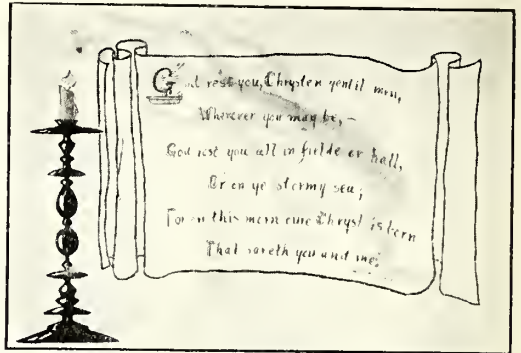 God rest you, Chrysten gentil men,
Wherever you may be,—
God rest you all in fielde or hall,
Or on ye stormy sea;
For on this morn oure Chryst is born
That saveth you and me.